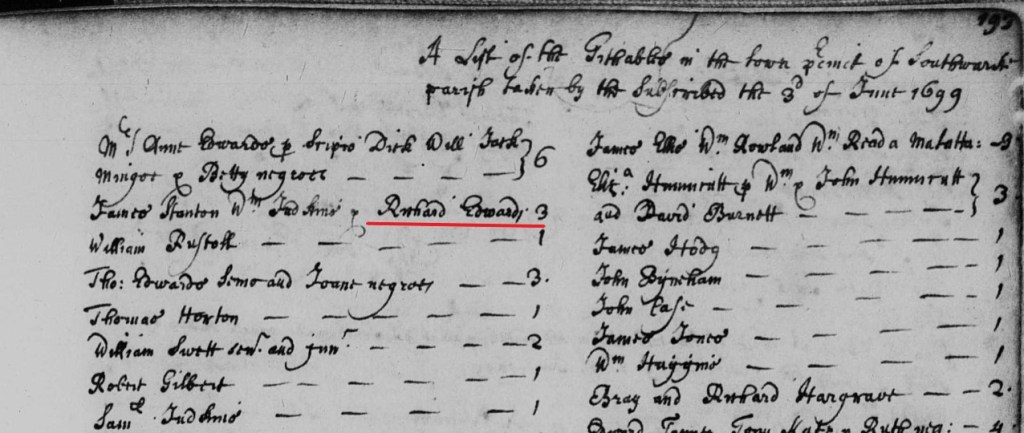 195
A List of the Tithables in the town pcinct of Southwarke
parish taken by the Subscribed the 3d of June 1699
Mrs Anne Edwards p Scipio Dick Will Jack
Mingoe p Betty negroes — — — — } 6
James Stanton Wm Judkins p Richard Edwards 3
William — — — — 1
Tho: Edwards Semo and Joane negroes — — 3.
Thomas Horton — — — — 1
William Swett senr and junr — — — — 2
Robert Gilbert — — — — 1
Saml Judkins — — — — 1
James Ellis Wm Rowland Wm Read a Malatta: — 3
Eliz:a Hunnicutt p Wm p John Hunnicutt
and David Burnett — — — } 3
James Hody — — — — 1
John Byneham — — — — 1
John Case — — — — 1
James Jones — — — — 1
Wm Huggins — — — — 1
Bray and Richard Hargrave — — 2.
4.